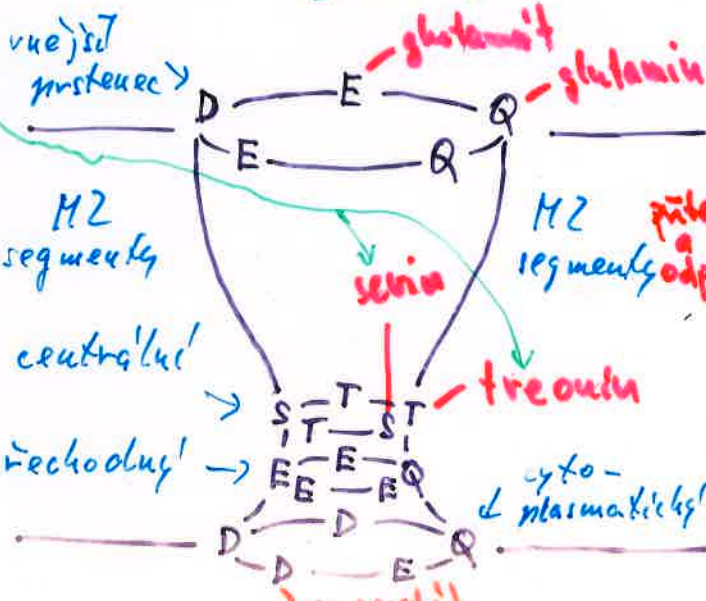 vnější
prstenec
glutamát
glutamin
D E Q
E Q
M2
segmenty
M2
segmenty
serin
centrální
threonin
S T T
T S
E E Q
E E
cyto-
plasmatický
D D Q
D E